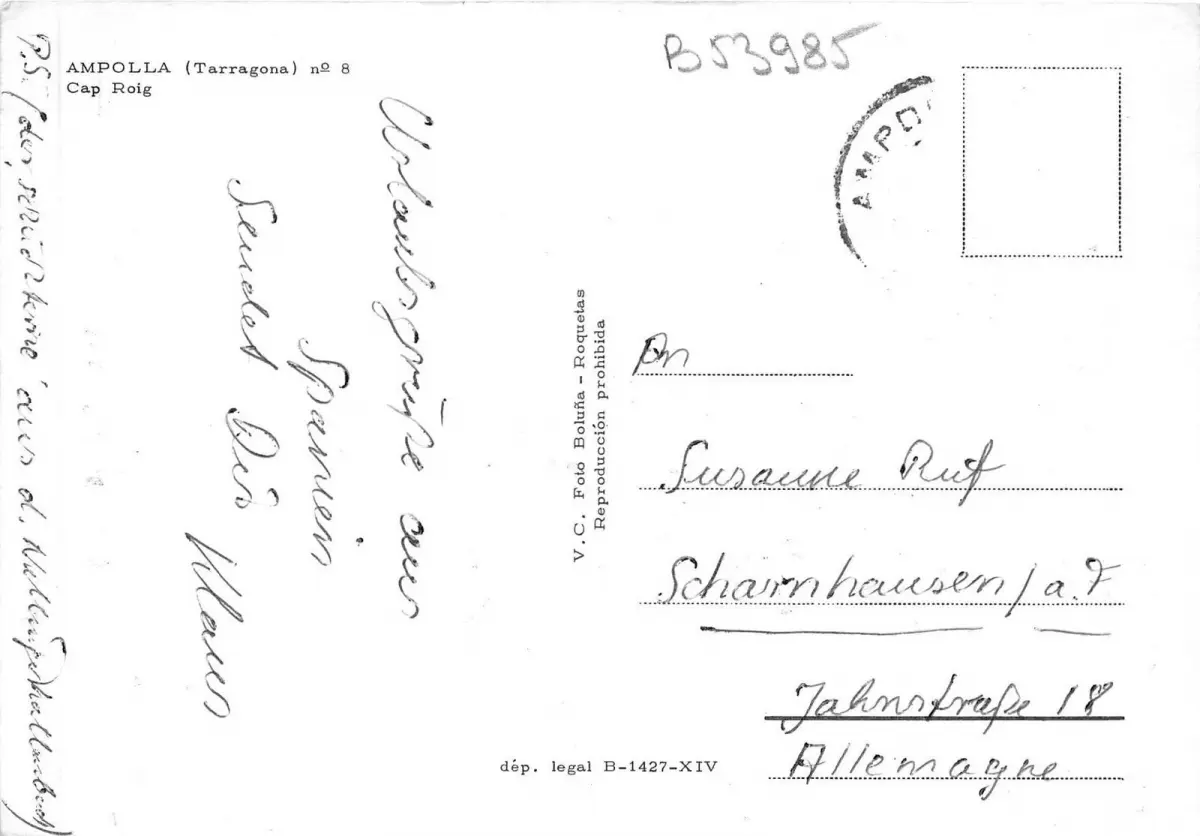 AMPOLLA (Tarragona) nº 8
Cap Roig
B53985
AMPO
Urlaubsgrüße aus
Spanien
Sendet Dir
Klaus
P.S. (der schüchterne aus d.
V. C. Foto Boluña - Roquetas
Reproducción prohibida
An
Susanne Ruf
Scharnhausen / a. F
Jahnstraße 18
Allemagne
dép. legal B-1427-XIV